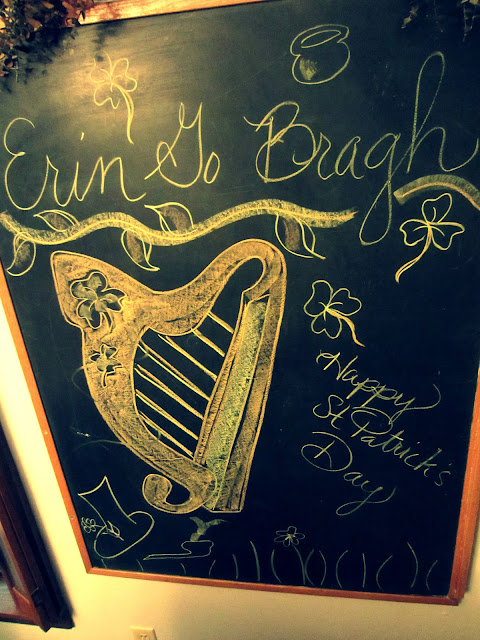 Erin Go Bragh
Happy
St Patrick's
Day